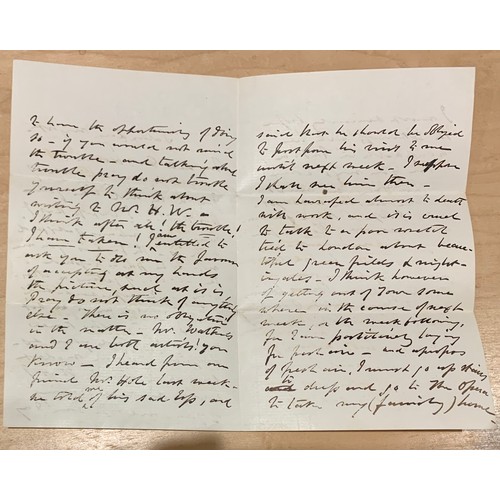 to have the opportunity of doing
so – if you would not mind
the trouble – and talking about
trouble pray do not trouble
yourself to think about
writing to Mr. H. W. –
I think after all (the trouble!
I have taken! I am entitled to
ask you to do me the favour
of accepting at my hands
the picture, such as it is
Pray do not think of anything
else – There is no obligation
in the matter – Mr.
and I are both artists! you
know – I heard from our
friend Mr. Hole last week –
he told me of his sad loss, and
said that he should be obliged
to postpone his visit to me
until next week – I suppose
I shall see him then –
I am harassed almost to death
with work, and it is cruel
to talk to a poor wretch
tied to London about beau-
tiful green fields & night-
ingales – I think however
of getting out of Town some
where in the course of next
week, or the week following,
for I am positively
for fresh air – and apropos
of fresh air, I must go up stairs
to dress and go to the Opera
to take my (family) home